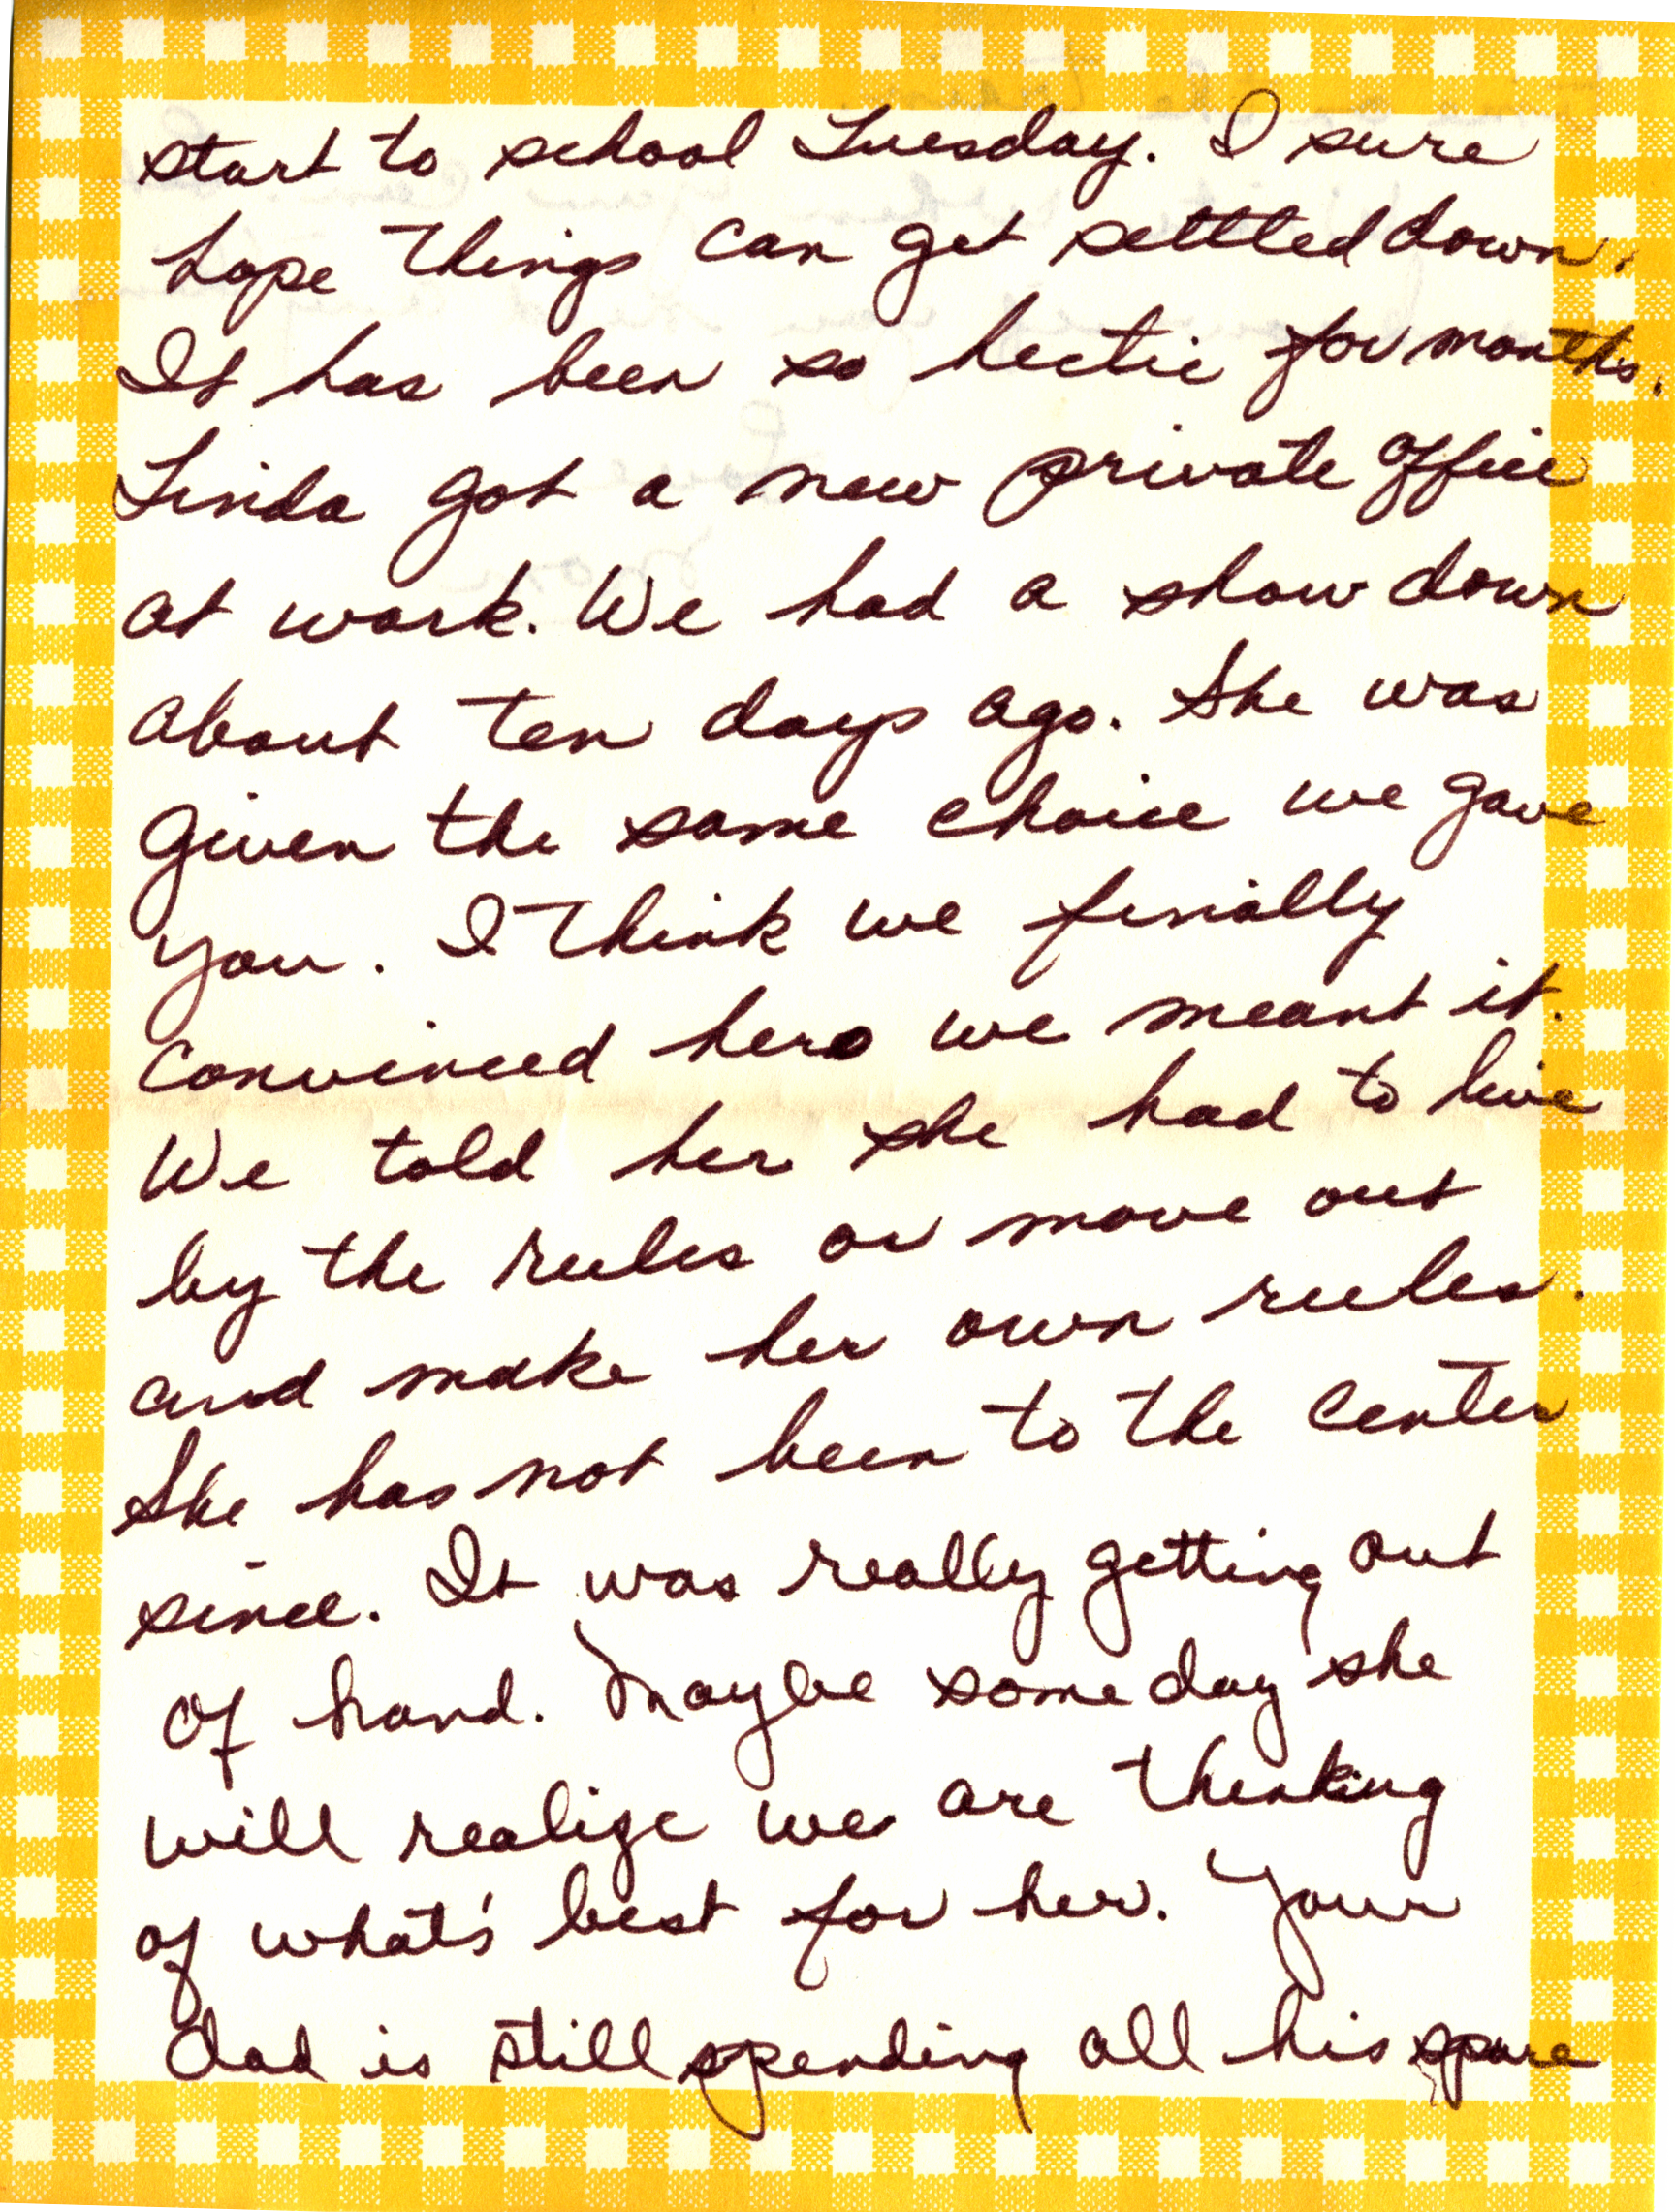 start to school Tuesday. I sure
hope things can get settled down.
It has been so hectic for months.
Linda got a new private office
at work. We had a show down
about ten days ago. She was
given the same choice we gave
you. I think we finally
convinced her we meant it.
We told her she had to live
by the rules or move out
and make her own rules.
She has not been to the Center
since. It was really getting out
of hand. Maybe some day she
will realize we are thinking
of what's best for her. Your
Dad is still spending all his spare